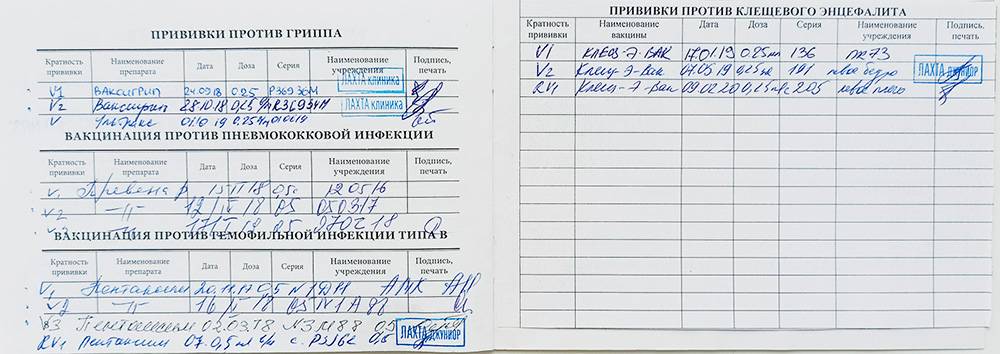 ПРИВИВКИ ПРОТИВ ГРИППА
Кратность прививки Наименование препарата Дата Доза Серия Наименование учреждения Подпись, печать
V1 Ваксигрип 24.09.18 0,25 P3G936M ЛАХТА клиника
V2 Ваксигрип 28.10.18 0,25 ЛАХТА клиника
V Ультрикс 01.10.19 0,25
ВАКЦИНАЦИЯ ПРОТИВ ПНЕВМОКОККОВОЙ ИНФЕКЦИИ
Кратность прививки Наименование препарата Дата Доза Серия Наименование учреждения Подпись, печать
V1 Превенар 18 05 120516
V2 –"– 12/IV 18 05 050317
–"– 18 05 070218
ВАКЦИНАЦИЯ ПРОТИВ ГЕМОФИЛЬНОЙ ИНФЕКЦИИ ТИПА В
Кратность прививки Наименование препарата Дата Доза Серия Наименование учреждения Подпись, печать
V1 Пентаксим 20.11.17 0,5
V2 –"– 16 18 05
V3 Пентаксим 02.03.18 N3M88 0,5 ЛАХТА ДЖУНИОР
RV1 Пентаксим
ПРИВИВКИ ПРОТИВ КЛЕЩЕВОГО ЭНЦЕФАЛИТА
Кратность прививки Наименование вакцины Дата Доза Серия Наименование учреждения Подпись, печать
V1 Клещ-Э-Вак 17.01.19 0,25 мл 136
V2 Клещ-Э-Вак 07.05.19 0,25 191 левое бедро ЛАХТА ДЖУНИОР
RV1 Клещ-Э-Вак 09.02.20 0,25 мл 205 левое плечо